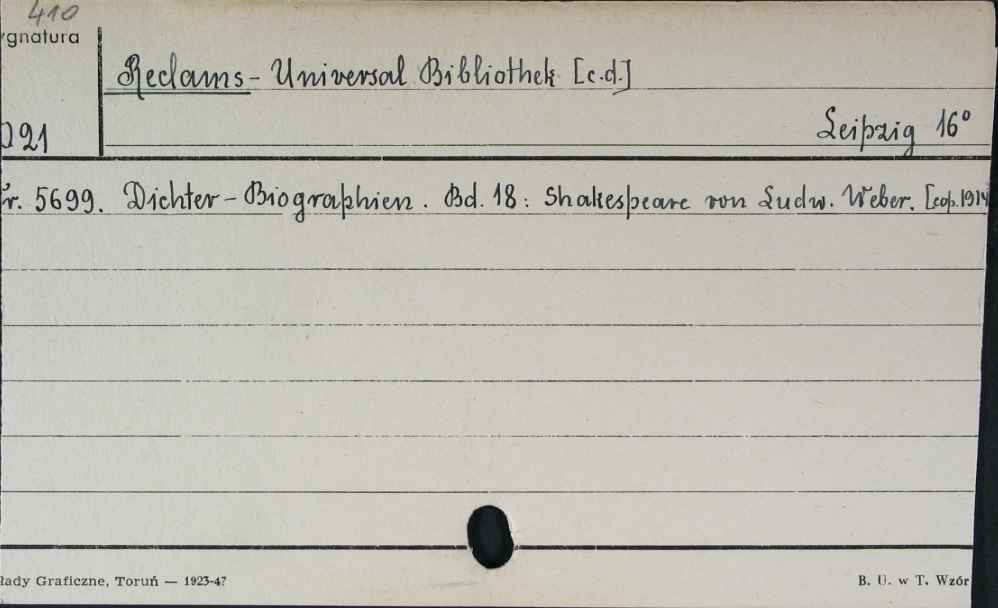 410
ygnatura
Reclams - Universal Bibliothek [c.d.]
Leipzig 16°
21
Nr. 5699. Dichter - Biographien. Bd. 18: Shakespeare von Ludw. Weber. [cop. 1914
łady Graficzne, Toruń — 1923-47
B. U. w T. Wzór